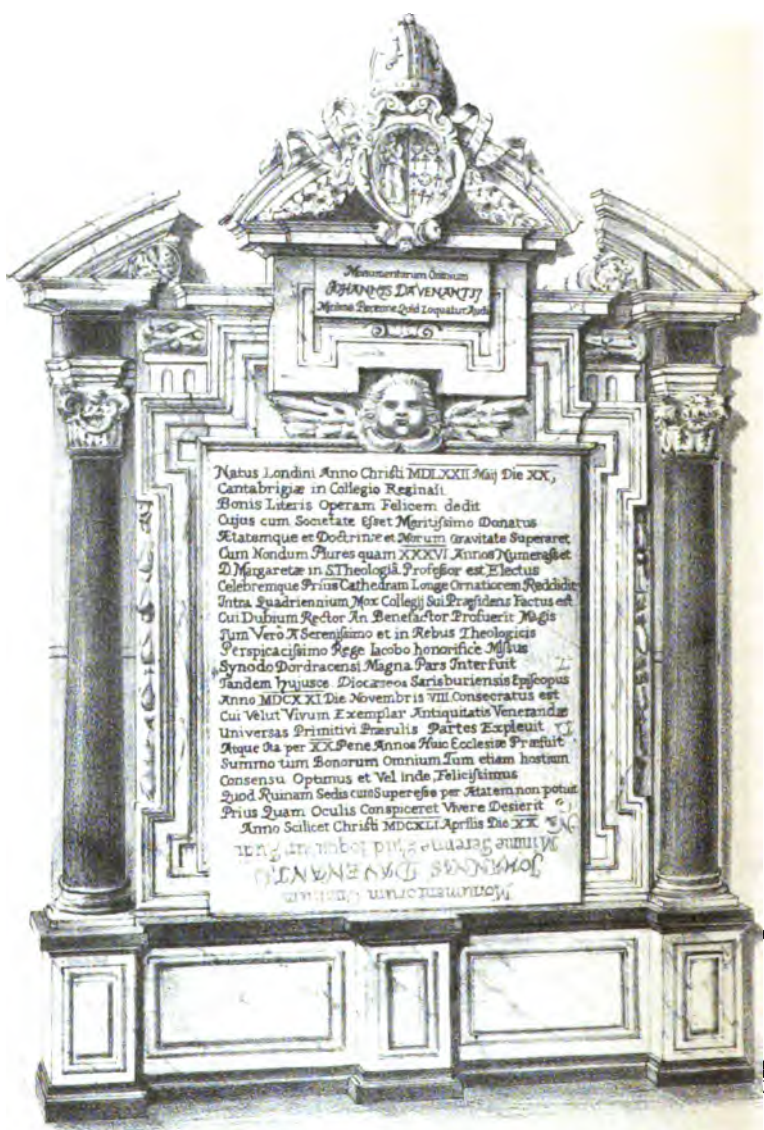 Monumentorum Omnium
JOHANNIS DAVENANTIJ
Minimè Perenne Quid Loquatur Audi
Natus Londini Anno Christi MDLXXII Maij Die XX,
Cantabrigiæ in Collegio Reginali
Bonis Literis Operam Felicem dedit
Cujus cum Societate Esset Meritissimo Donatus
Ætatemque et Doctrinæ et Morum Gravitate Superaret
Cum Nondum Plures quam XXXVI Annos Numerasset
D. Margaretæ in S. Theologiâ Professor est Electus
Celebremque Prius Cathedram Longe Ornatiorem Reddidit
Intra Quadriennium Mox Collegij Sui Præsidens Factus est
Cui Dubium Rector An Benefactor Profuerit Magis
Tum Verò A Serenissimo et in Rebus Theologicis
Perspicacissimo Rege Iacobo honorificè Missus
Synodo Dordracensi Magna Pars Interfuit
Tandem hujusce Diocæseos Sarisburiensis Episcopus
Anno MDCXXI Die Novembris VIII Consecratus est
Cui Velut Vivum Exemplar Antiquitatis Venerandæ
Universas Primitivi Præsulis Partes Explevit
Atque Ita per XX Pene Annos Huic Ecclesiæ Præfuit
Summo tum Bonorum Omnium Tum etiam hostium
Consensu Optimus et Vel inde Felicissimus
Quod Ruinam Sedis cum Superesse per Ætatem non potuit
Prius Quam Oculis Conspiceret Vivere Desierit
Anno Scilicet Christi MDCXLI Aprilis Die XX
Minime Perenne Quid loquatur Audi
JOHANNIS DAVENANTIJ
Monumentorum Omnium